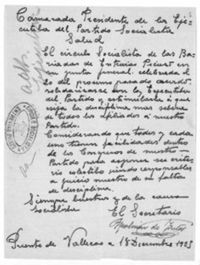 Camarada Presidente de la Eje
cutiva del Partido Socialista
Salud
El círculo Socialista de las Ba
rriadas de Entrevías Picazo en
su junta general celebrada el
20 del proximo pasado acordó
solidarizarse con la Ejecutiva
del Partido, y estimularle a que
siga la disciplina mas severa
de todos los afiliados a nuestro
Partido.
Considerando que todos y cada
uno tienen facilidades dentro
de los Congresos de nuestro
Partido para exponer su crite
rio
a juicio nuestro de su falta
de disciplina.
Siempre vuestro y de la causa
socialista
El Secretario
Puente de Vallecas a 18 Diciembre 1935